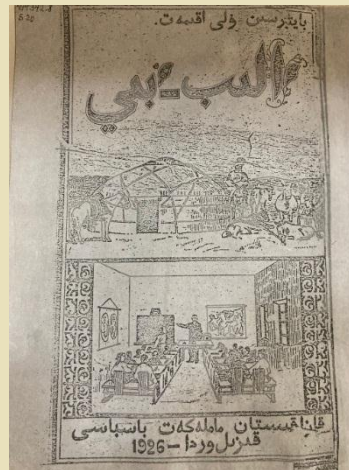 بايتٸرسىن ۇلى اقمەت.
الىب - بىي
قازاقىستان مەملەكەت باسباسى
قىزىل وردا – 1926